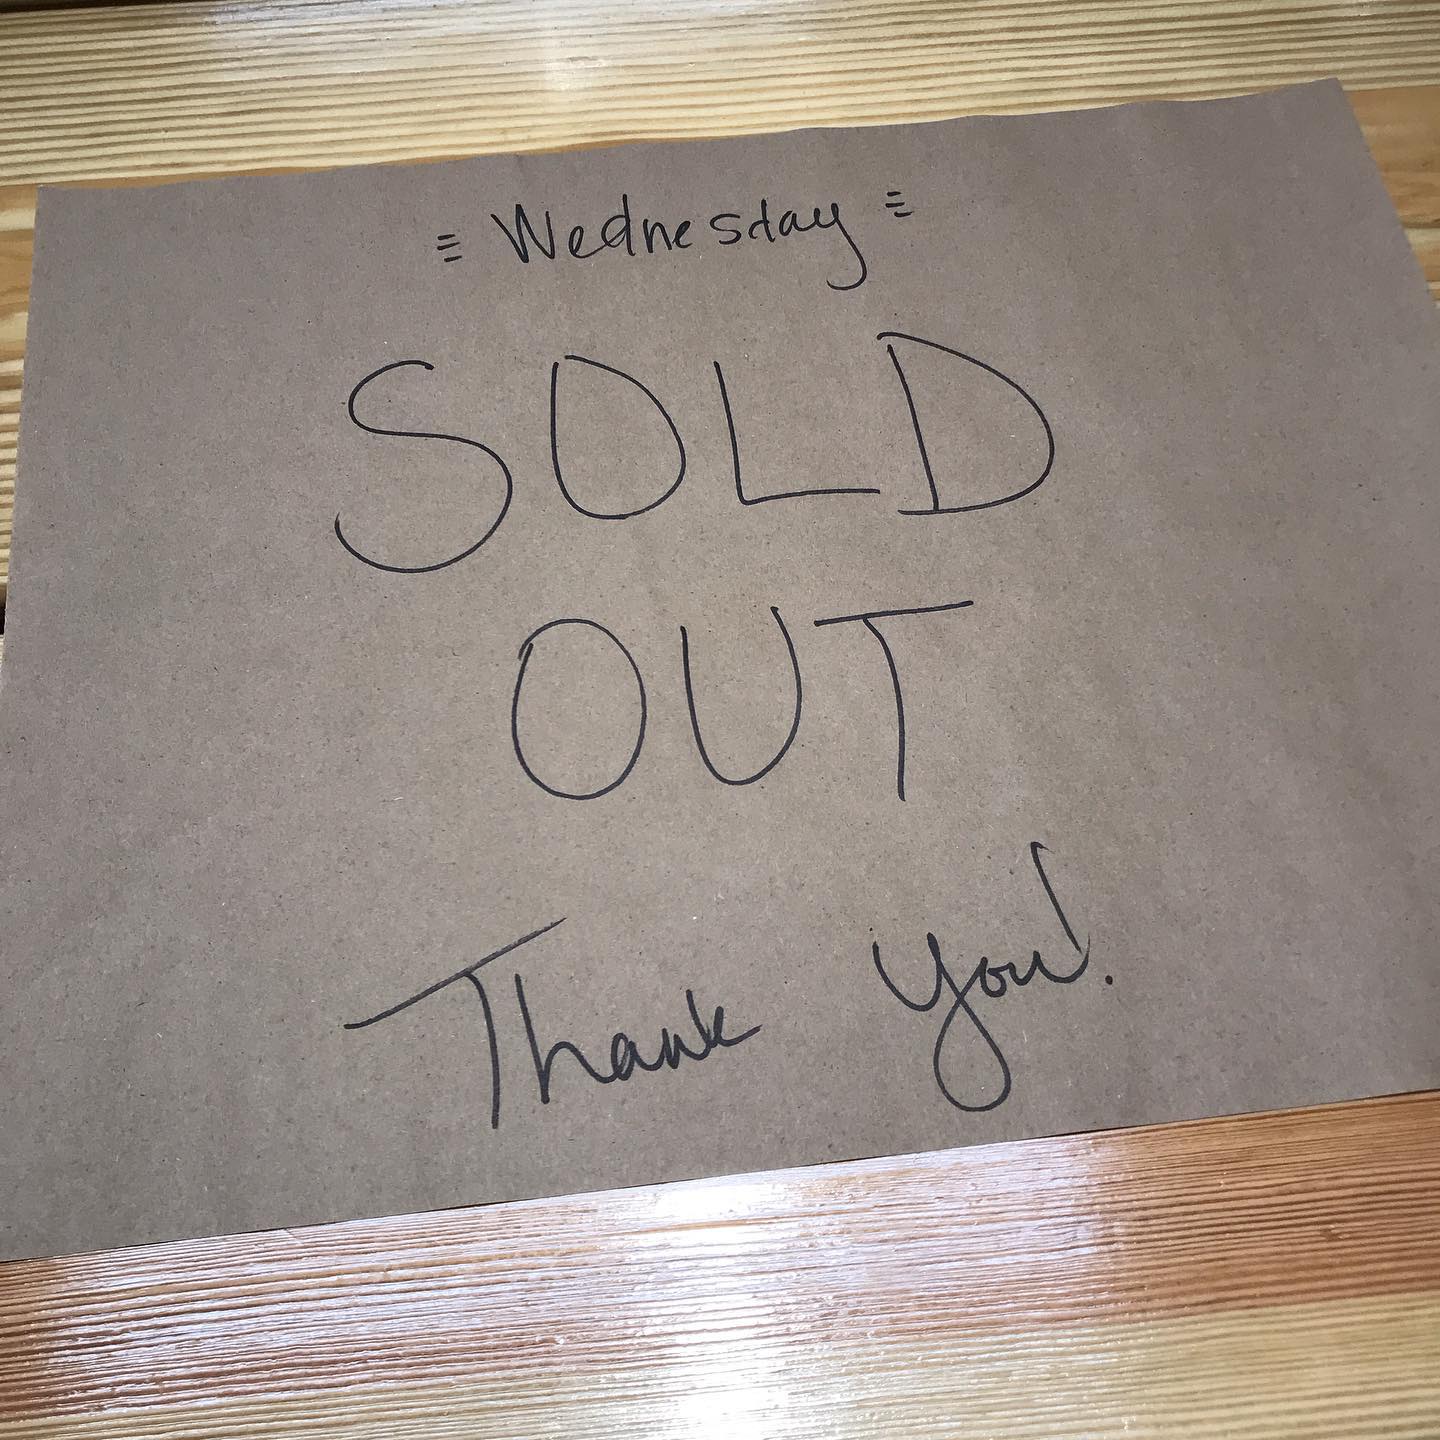 Wednesday
SOLD
OUT
Thank You!